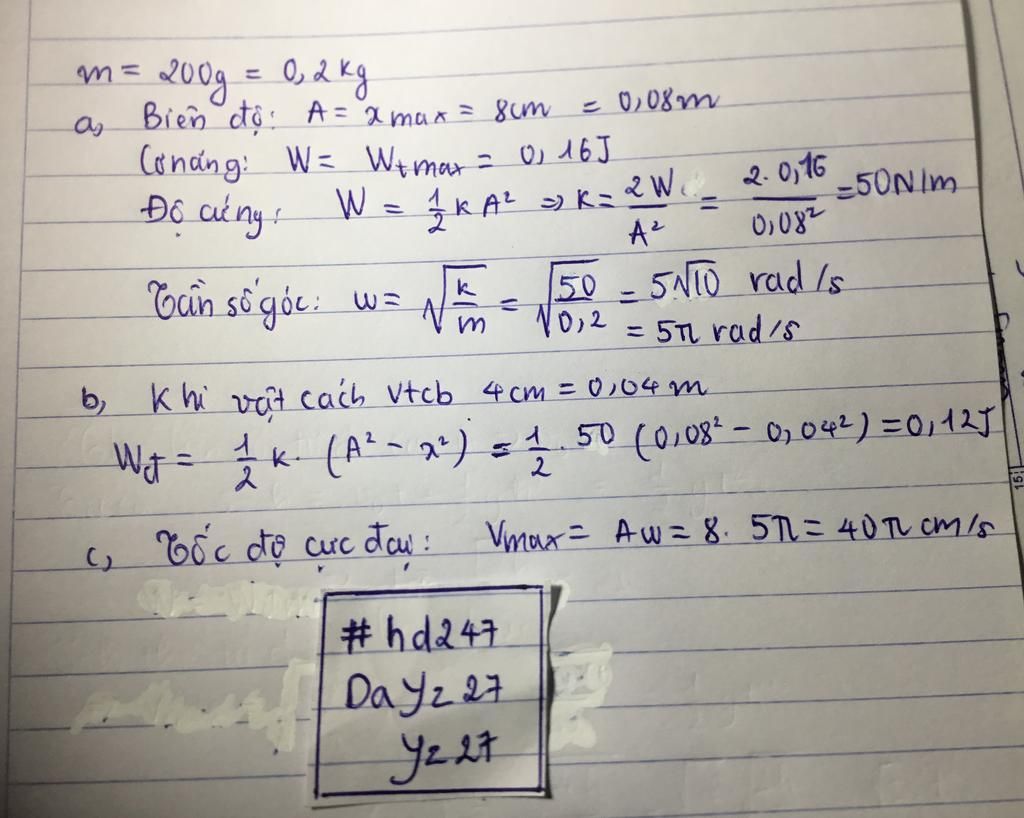 m = 200g = 0,2kg
a, Biên độ: A = xmax = 8cm = 0,08m
Cơ năng: W = Wtmax = 0,16J
Độ cứng: W = 1/2 k A² => k = 2W/A² = 2.0,16/0,08² = 50N/m
Tần số góc: w = √(k/m) = √(50/0,2) = 5√10 rad/s
= 5π rad/s
b, Khi vật cách vtcb 4cm = 0,04m
Wđ = 1/2 k. (A² - x²) = 1/2 . 50 (0,08² - 0,04²) = 0,12J
c, Tốc độ cực đại: Vmax = Aw = 8. 5π = 40π cm/s
#hd247
DaYz27
Yz27
15